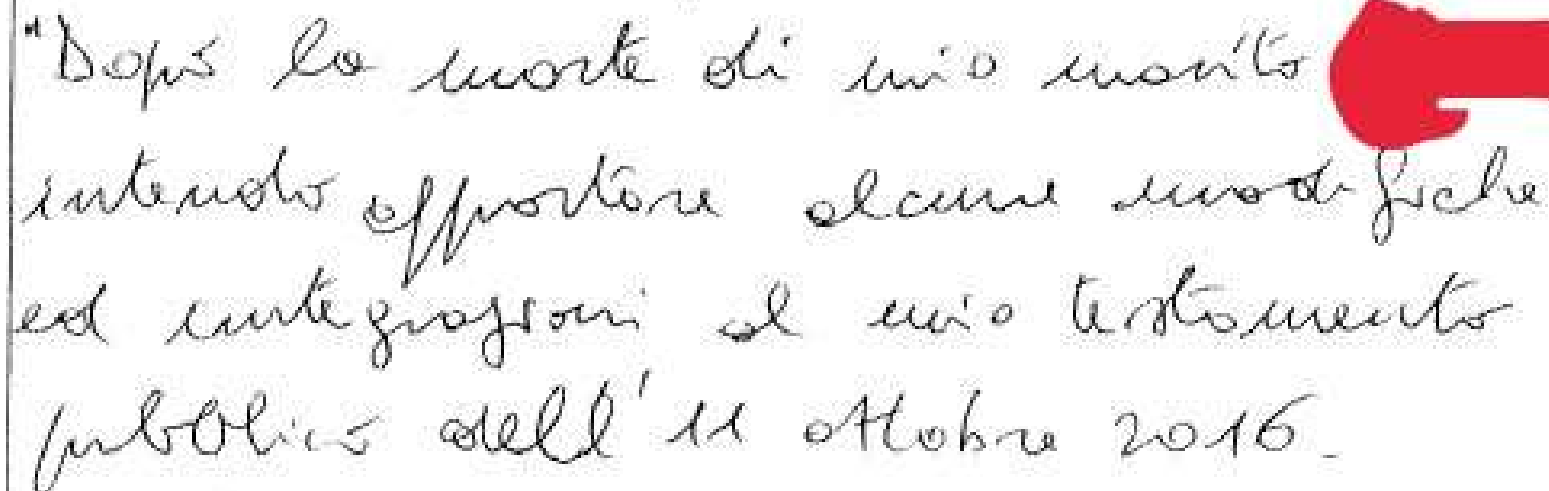 "Dopo la morte di mio marito
intendo apportare alcune modifiche
ed integrazioni al mio testamento
pubblico dell'11 ottobre 2016.